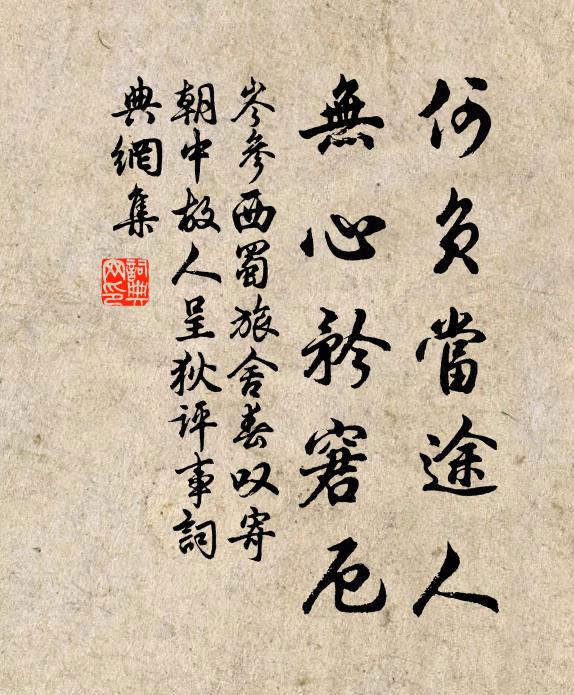 何負當途人
無心矜窘厄
岑參西蜀旅舍春叹寄
朝中故人呈狄评事詞
典網集
詞典
网印